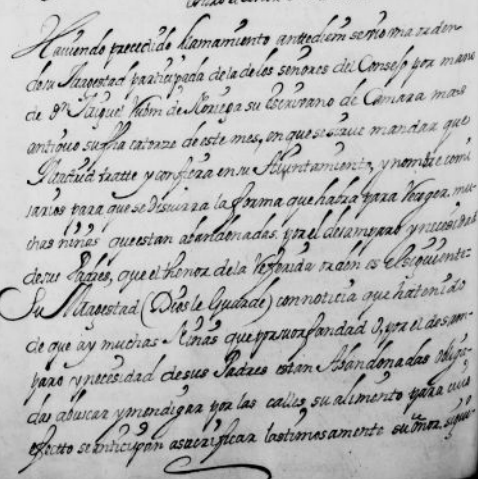 Haviendo precedido llamamiento antediem se vio una orden
de su Magestad participada de la de los señores del Consejo por mano
de Dn Miguel Rubin de Noriega su escrivano de Camara mas
antiguo su fha catorze de este mes, en que se sirve mandar que
Madrid tratte y confiera en su Ayuntamiento, y nombre comi
sarios para que se Discurra la forma que habra para Recoger mu
chas niñas que estan abandonadas por el desamparo y necesidad
de sus Padres, que el thenor de la Referida orden es el siguiente=
Su Magestad (Dios le Guarde) con noticia que ha tenido
de que ay muchas Niñas que por su orfandad O, por el desam
paro y necesidad de sus Padres estan Abandonadas obliga
das a buscar y mendigar por las calles, su alimento para cuio
efectto se anticipan a sacrificar lastimosamente su onor,